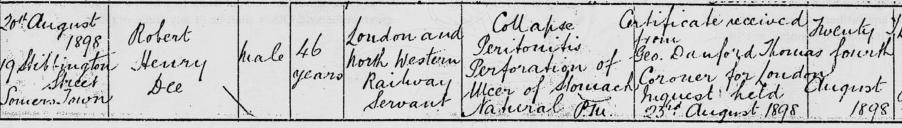 20th August
1898
19 Stibbington
Street
Somers Town
Robert
Henry
Dee
Male
46
years
London and
North Western
Railway
Servant
Collapse
Peritonitis
Perforation of
Ulcer of Stomach
Natural P.M.
Certificate received
from
Geo. Danford Thomas
Coroner for London
Inquest held
23rd August 1898
Twenty
fourth
August
1898